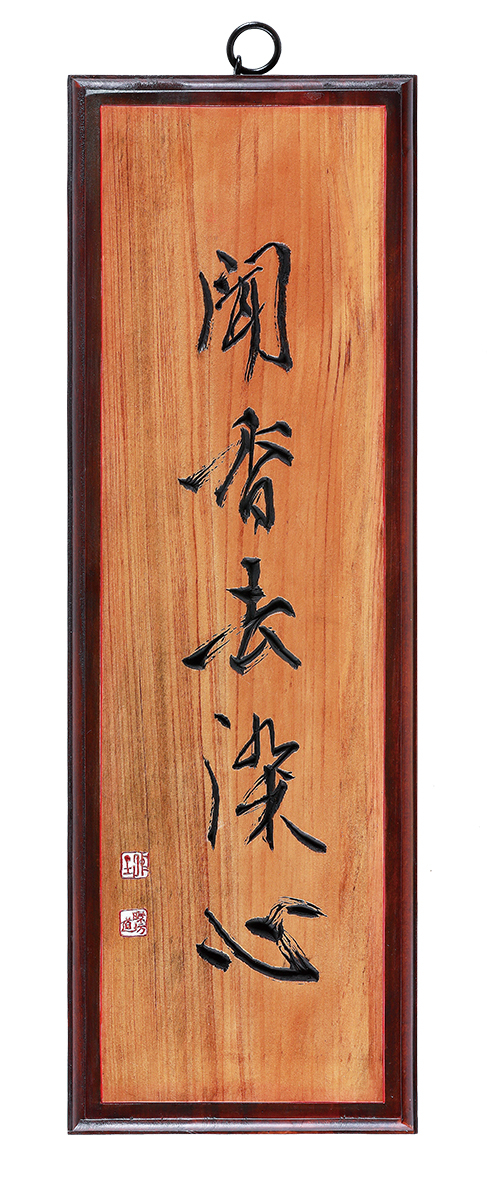 闻香去染心